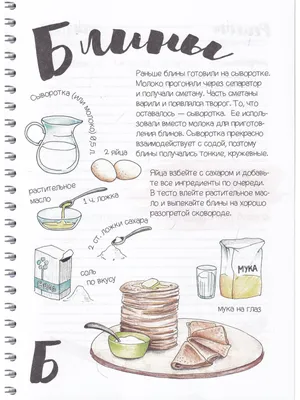 Блины
Раньше блины готовили на сыворотке.
Молоко прогоняли через сепаратор
и получали сметану. Часть сметаны
варили и появлялся творог. То, что
оставалось — сыворотка. Ее исполь-
зовали вместо молока для приготов-
ления блинов. Сыворотка прекрасно
взаимодействует с содой, поэтому
блины получались тонкие, кружевные.
Яйца взбейте с сахаром и добавь-
те все ингредиенты по очереди.
В тесто влейте растительное мас-
ло и выпекайте блины на хорошо
разогретой сковороде.
Сыворотка (или молоко) 0,5 л
2 яйца
растительное
масло
1 ч. ложка
2 ст. ложки сахара
соль
по вкусу
МУКА
мука на глаз
Б